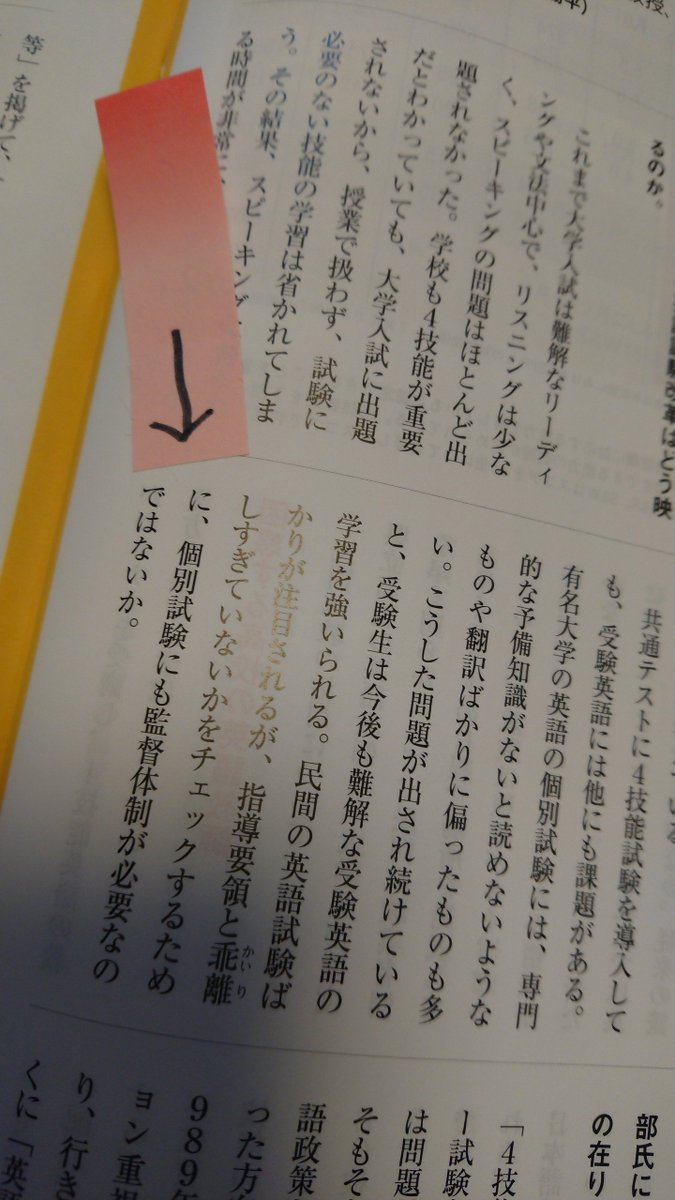 改革はどう映
るのか。
これまで大学入試は難解なリーディ
ングや文法中心で、リスニングは少な
く、スピーキングの問題はほとんど出
題されなかった。学校も4技能が重要
だとわかっていても、大学入試に出題
されないから、授業で扱わず、試験に
必要のない技能の学習は省かれてしま
う。その結果、スピーキング
る時間が非常に
共通テストに4技能試験を導入して
も、受験英語には他にも課題がある。
有名大学の英語の個別試験には、専門
的な予備知識がないと読めないような
ものや翻訳ばかりに偏ったものも多
い。こうした問題が出され続けている
と、受験生は今後も難解な受験英語の
学習を強いられる。民間の英語試験ば
かりが注目されるが、指導要領と乖離
かいり
しすぎていないかをチェックするため
に、個別試験にも監督体制が必要なの
ではないか。
部氏に
の在り
「4技
ー試験
は問題
そもそ
語政策
った方
989年
ョン重視
り、行き
くに「英
等」を掲げて、